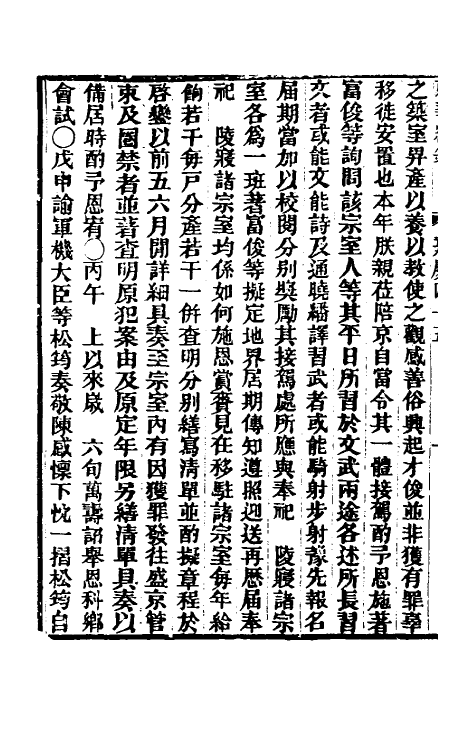 之築室畀產以養以教使之觀感善俗興起才俊並非獲有罪辜
移徙安置也本年朕親莅陪京自當令其一體接駕酌予恩施著
富俊等詢問該宗室人等其平日所習於文武兩途各述所長習
文者或能文能詩及通曉繙譯習武者或能騎射步射豫先報名
屆期當加以校閱分別獎勵其接駕處所應與奉祀　陵寢諸宗
室各爲一班著富俊等擬定地界居期傳知遵照迎送再歷屆奉
祀　陵寢諸宗室均係如何施恩賞賚見在移駐諸宗室每年給
餉若干每戶分產若干一併查明分別繕寫清單並酌擬章程於
啓鑾以前五六月閒詳細具奏至宗室內有因獲罪發往盛京管
束及圈禁者並著查明原犯案由及原定年限另繕清單具奏以
備居時酌予恩宥○丙午　上以來歲　六旬萬壽詔舉恩科鄉
會試○戊申諭軍機大臣等松筠奏敬陳感懷下忱一摺松筠自